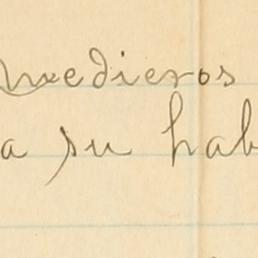 medieros
a su hab